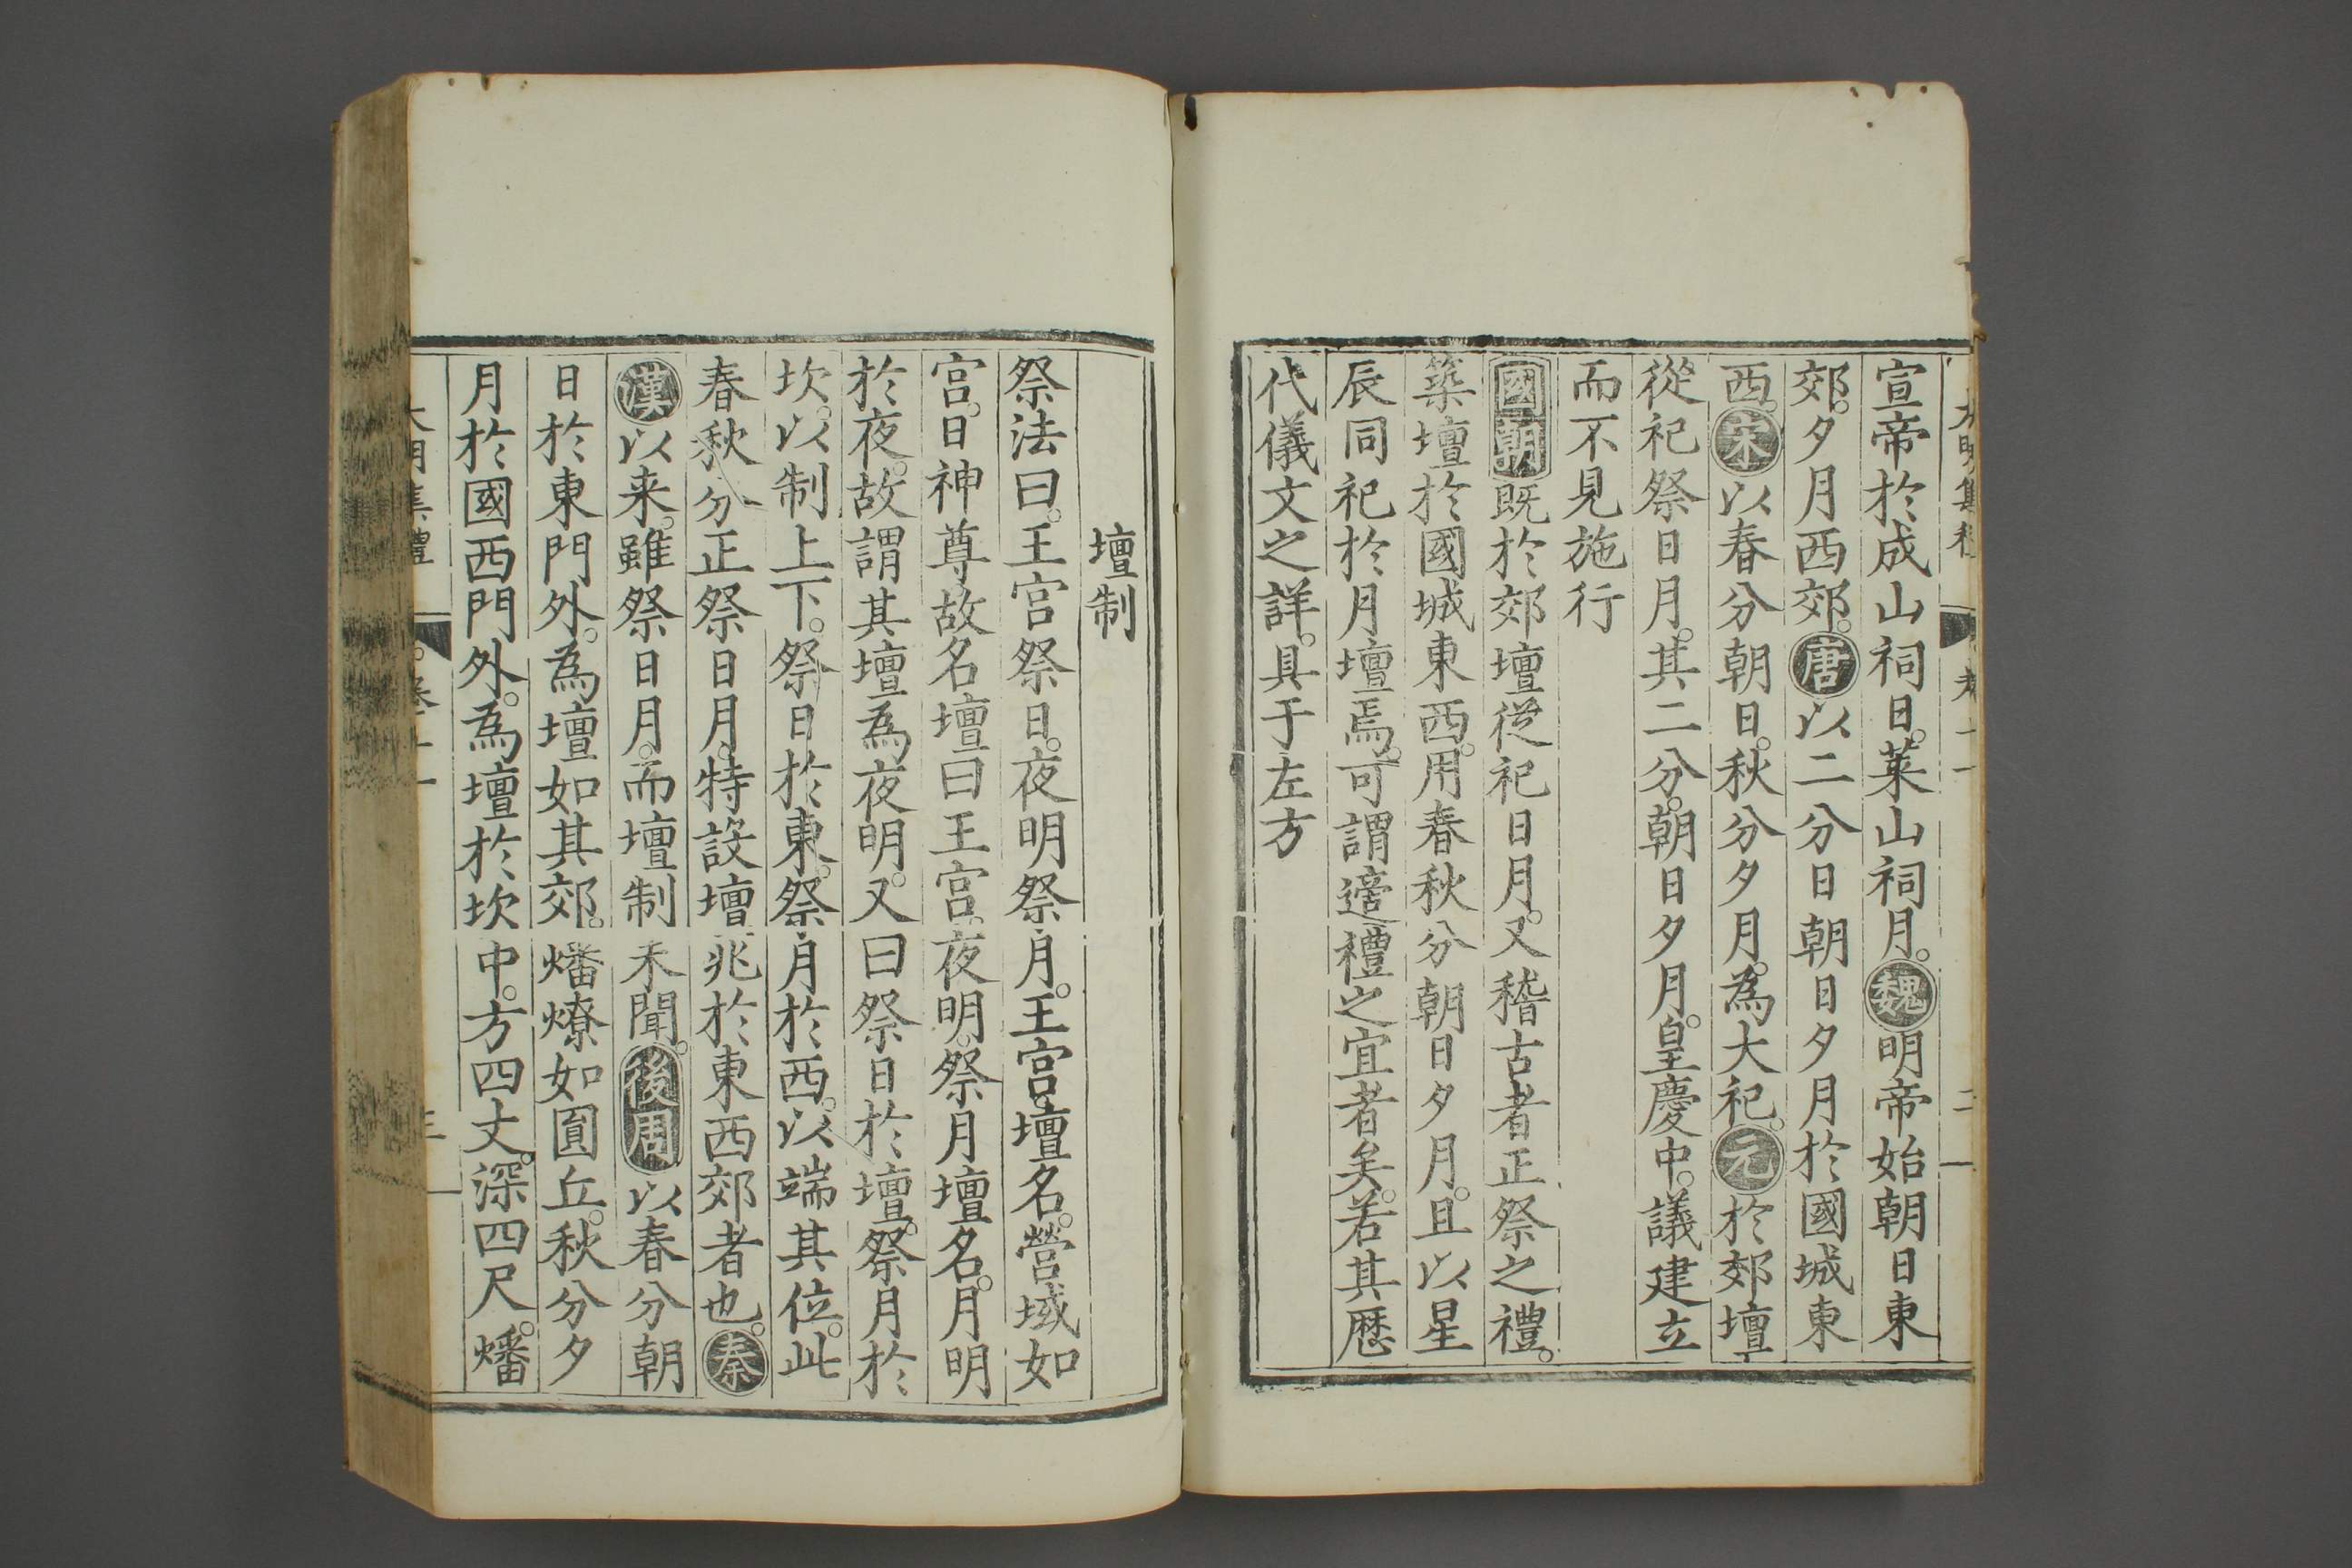 宣帝於成山祠日。萊山祠月。魏明帝始朝日東
郊。夕月西郊。唐以二分日朝日夕月於國城東
西。宋以春分朝日。秋分夕月。為大祀。元於郊壇
從祀祭日月。其二分。朝日夕月。皇慶中。議建立
而不見施行
國朝既於郊壇從祀日月。又稽古者正祭之禮。
築壇於國城東西。用春秋分朝日夕月。且以星
辰同祀於月壇焉。可謂適禮之宜者矣。若其歷
代儀文之詳。具于左方
壇制
祭法曰。王宮祭日。夜明祭月。王宮壇名。營域如
宮。日神尊故名壇曰王宮。夜明。祭月壇名。月明
於夜。故謂其壇為夜明。又曰祭日於壇。祭月於
坎。以制上下。祭日於東。祭月於西。以端其位。此
春秋分正祭日月。特設壇兆於東西郊者也。秦
漢以来。雖祭日月。而壇制未聞。後周以春分朝
日於東門外。為壇如其郊。燔燎如圓丘。秋分夕
月於國西門外。為壇於坎中。方四丈。深四尺。燔
大明集禮 卷十一 三